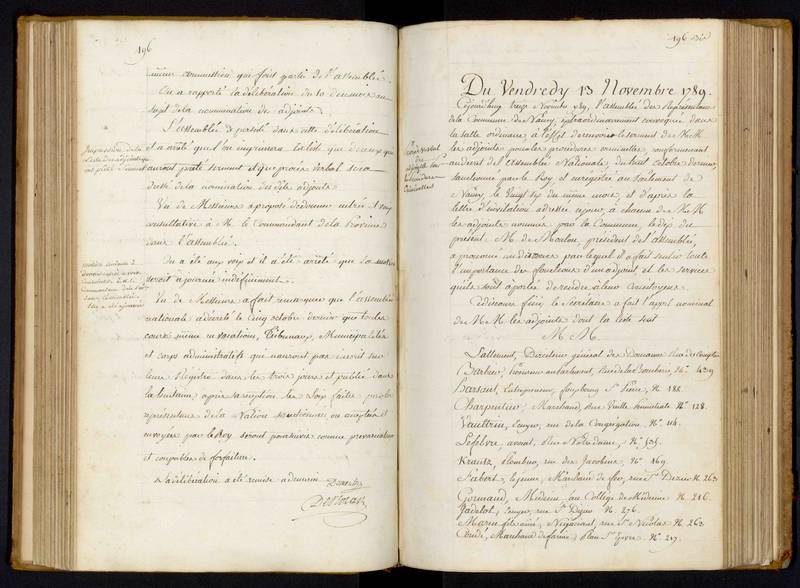 196
même commission qui fait partie de l'assemblée.
On a rapporté la délibération du 10 de ce mois au
sujet de la nomination des adjoints.
L'assemblée persiste dans cette délibération
et a arrêté que l'on imprimera la liste de ceux qui
auront prêté serment et que procès verbal sera
dressé de la nomination desdits adjoints.
Un de Messieurs a proposé de donner entrée et voix
consultative à M. le Commandant de la Province
dans l'assemblée.
On a été aux voix et il a été arrêté que la motion
seroit ajournée indéfiniment.
Un de Messieurs a fait remarquer que l'assemblée
nationale a décrété le cinq octobre dernier que toutes
cours même en vacations, Tribunaux, Municipalités
et corps administratifs qui n'auront pas inscrit sur
leurs Registres dans les trois jours et publié dans
la huitaine, après la réception, les Loix faites par les
représentans de la Nation sanctionnées ou acceptées et
envoyées par le Roy seront poursuivis comme prévaricateurs
et coupables de forfaiture.
La délibération a été remise à demain
196 bis
Du Vendredy 13 Novembre 1789.
Procès verbal
Aujourd'huy treize Novembre 1789, l'assemblée des Représentans
de la Commune de Nancy, extraordinairement convoquée dans
la salle ordinaire, à l'effet de recevoir le serment de MM.
les adjoints pour les procédures criminelles, conformément
au décret de l'assemblée Nationale du huit octobre dernier
sanctionné par le Roy et enregistré au Parlement de
Nancy, le Vingt six du même mois, et d'après la
lettre d'invitation adressée à chacun de MM.
les adjoints nommés par la Commune, le dix du
présent. M. de président de l'assemblée,
a prononcé un discours par lequel il a fait sentir toute
l'importance des fonctions d'un adjoint et les services
qu'ils sont à portée de rendre à leurs Concitoyens.
Ce discours fini, le Secrétaire a fait l'appel nominal
de MM. les adjoints dont la liste suit
MM.
Lallement, Directeur général des Domaines Rue des
Barbier, Rue de la N° 439
Harsant, Entrepreneur, fauxbourg St. Pierre, N° 188.
Charpentier, Marchand, Rue Vieille N° 128.
Vaultrin, Ecuyer, rue de la Congrégation, N° 114.
Lefebvre, avocat, Rue Notre dame, N°
Krantz, rue des Jacobins, N° 169
Fabert, le jeune, Marchand de fer, rue St. Dizier N° 263
Gormand, Médecin, au Collège de Médecine N° 216.
Jadelot, rue St. Dizier N° 276.
Marin fils aîné, Négociant, rue St. Nicolas N° 263
Marchand de farine, Place St. Epvre, N° 217.